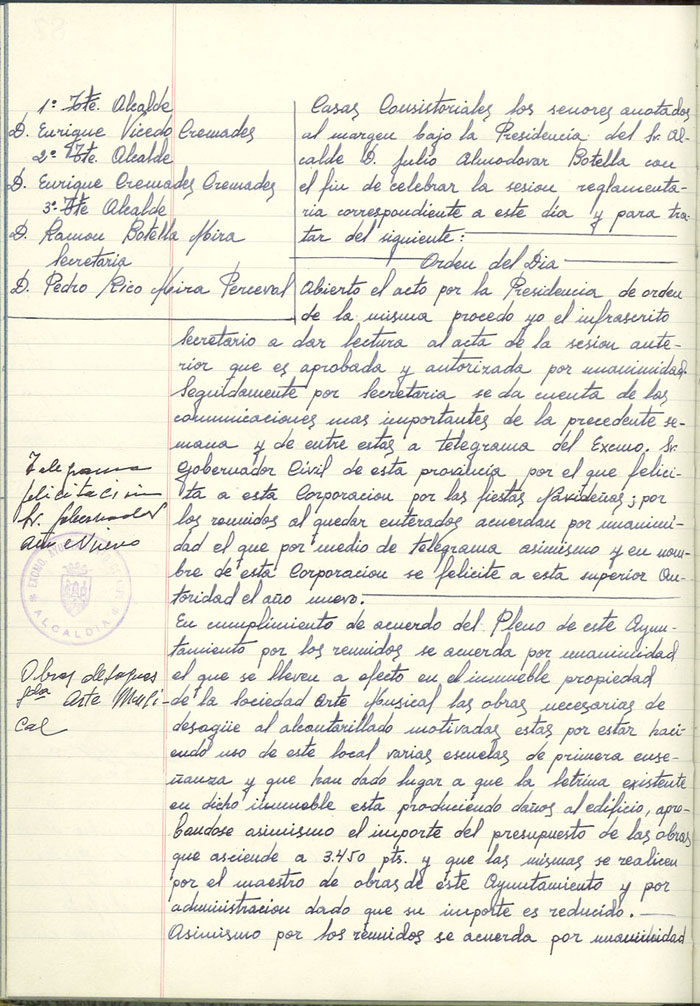 1º Tte. Alcalde
D. Enrique Vicedo Cremades
2º Tte. Alcalde
D. Enrique Cremades Cremades
3º Tte Alcalde
D. Ramon Botella Mira
Secretaria
D. Pedro Rico Mira Perceval
Casas Consistoriales los senores anotados
al margen bajo la Presidencia del Sr. Al-
calde D. Julio Almodovar Botella con
el fin de celebrar la sesion reglamenta-
ria correspondiente a este dia y para tra-
tar del siguiente:
Orden del Dia
Abierto el acto por la Presidencia de orden
de la misma procedo yo el infrascrito
Secretario a dar lectura al acta de la sesion ante-
rior que es aprobada y autorizada por unanimidad.
Seguidamente por Secretaria se da cuenta de las
comunicaciones mas importantes de la precedente se-
mana y de entre estas a telegrama del Excmo. Sr.
Gobernador Civil de esta provincia por el que felici-
ta a esta Corporacion por las fiestas Navideñas; por
los reunidos al quedar enterados acuerdan por unanimi-
dad el que por medio de telégrama asimismo y en nom-
bre de esta Corporacion se felicite a esta superior Au-
toridad el año nuevo.
Telegrama
felicitacion
Sr. Gobernador
Año Nuevo
ALCALDIA
En cumplimiento de acuerdo del Pleno de este Ayun-
tamiento por los reunidos se acuerda por unanimidad
el que se lleven a efecto en el inmueble propiedad
de la Sociedad Arte Musical las obras necesarias de
desagüe al alcantarillado motivadas estas por estar haci-
endo uso de este local varias escuelas de primera ense-
ñanza y que han dado lugar a que la letrina existente
en dicho inmueble esta produciendo daños al edificio, apro-
bandose asimismo el importe del presupuesto de las obras
que asciende a 3.450 pts. y que las mismas se realicen
por el maestro de obras de este Ayuntamiento y por
administracion dado que su importe es reducido.
Asimismo por los reunidos se acuerda por unanimidad
Obras desagues
Arte Musi-
cal